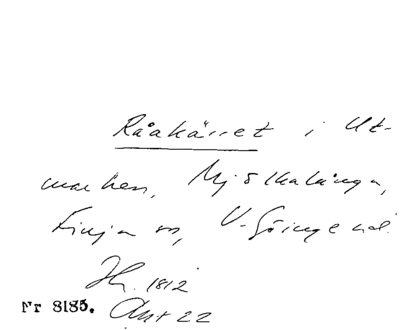 Rååkärret i Ut-
marken, Mjölkalånga,
Finja sn, V-Göinge hd.
Hs. 1812
Nr 8185. Akt 22